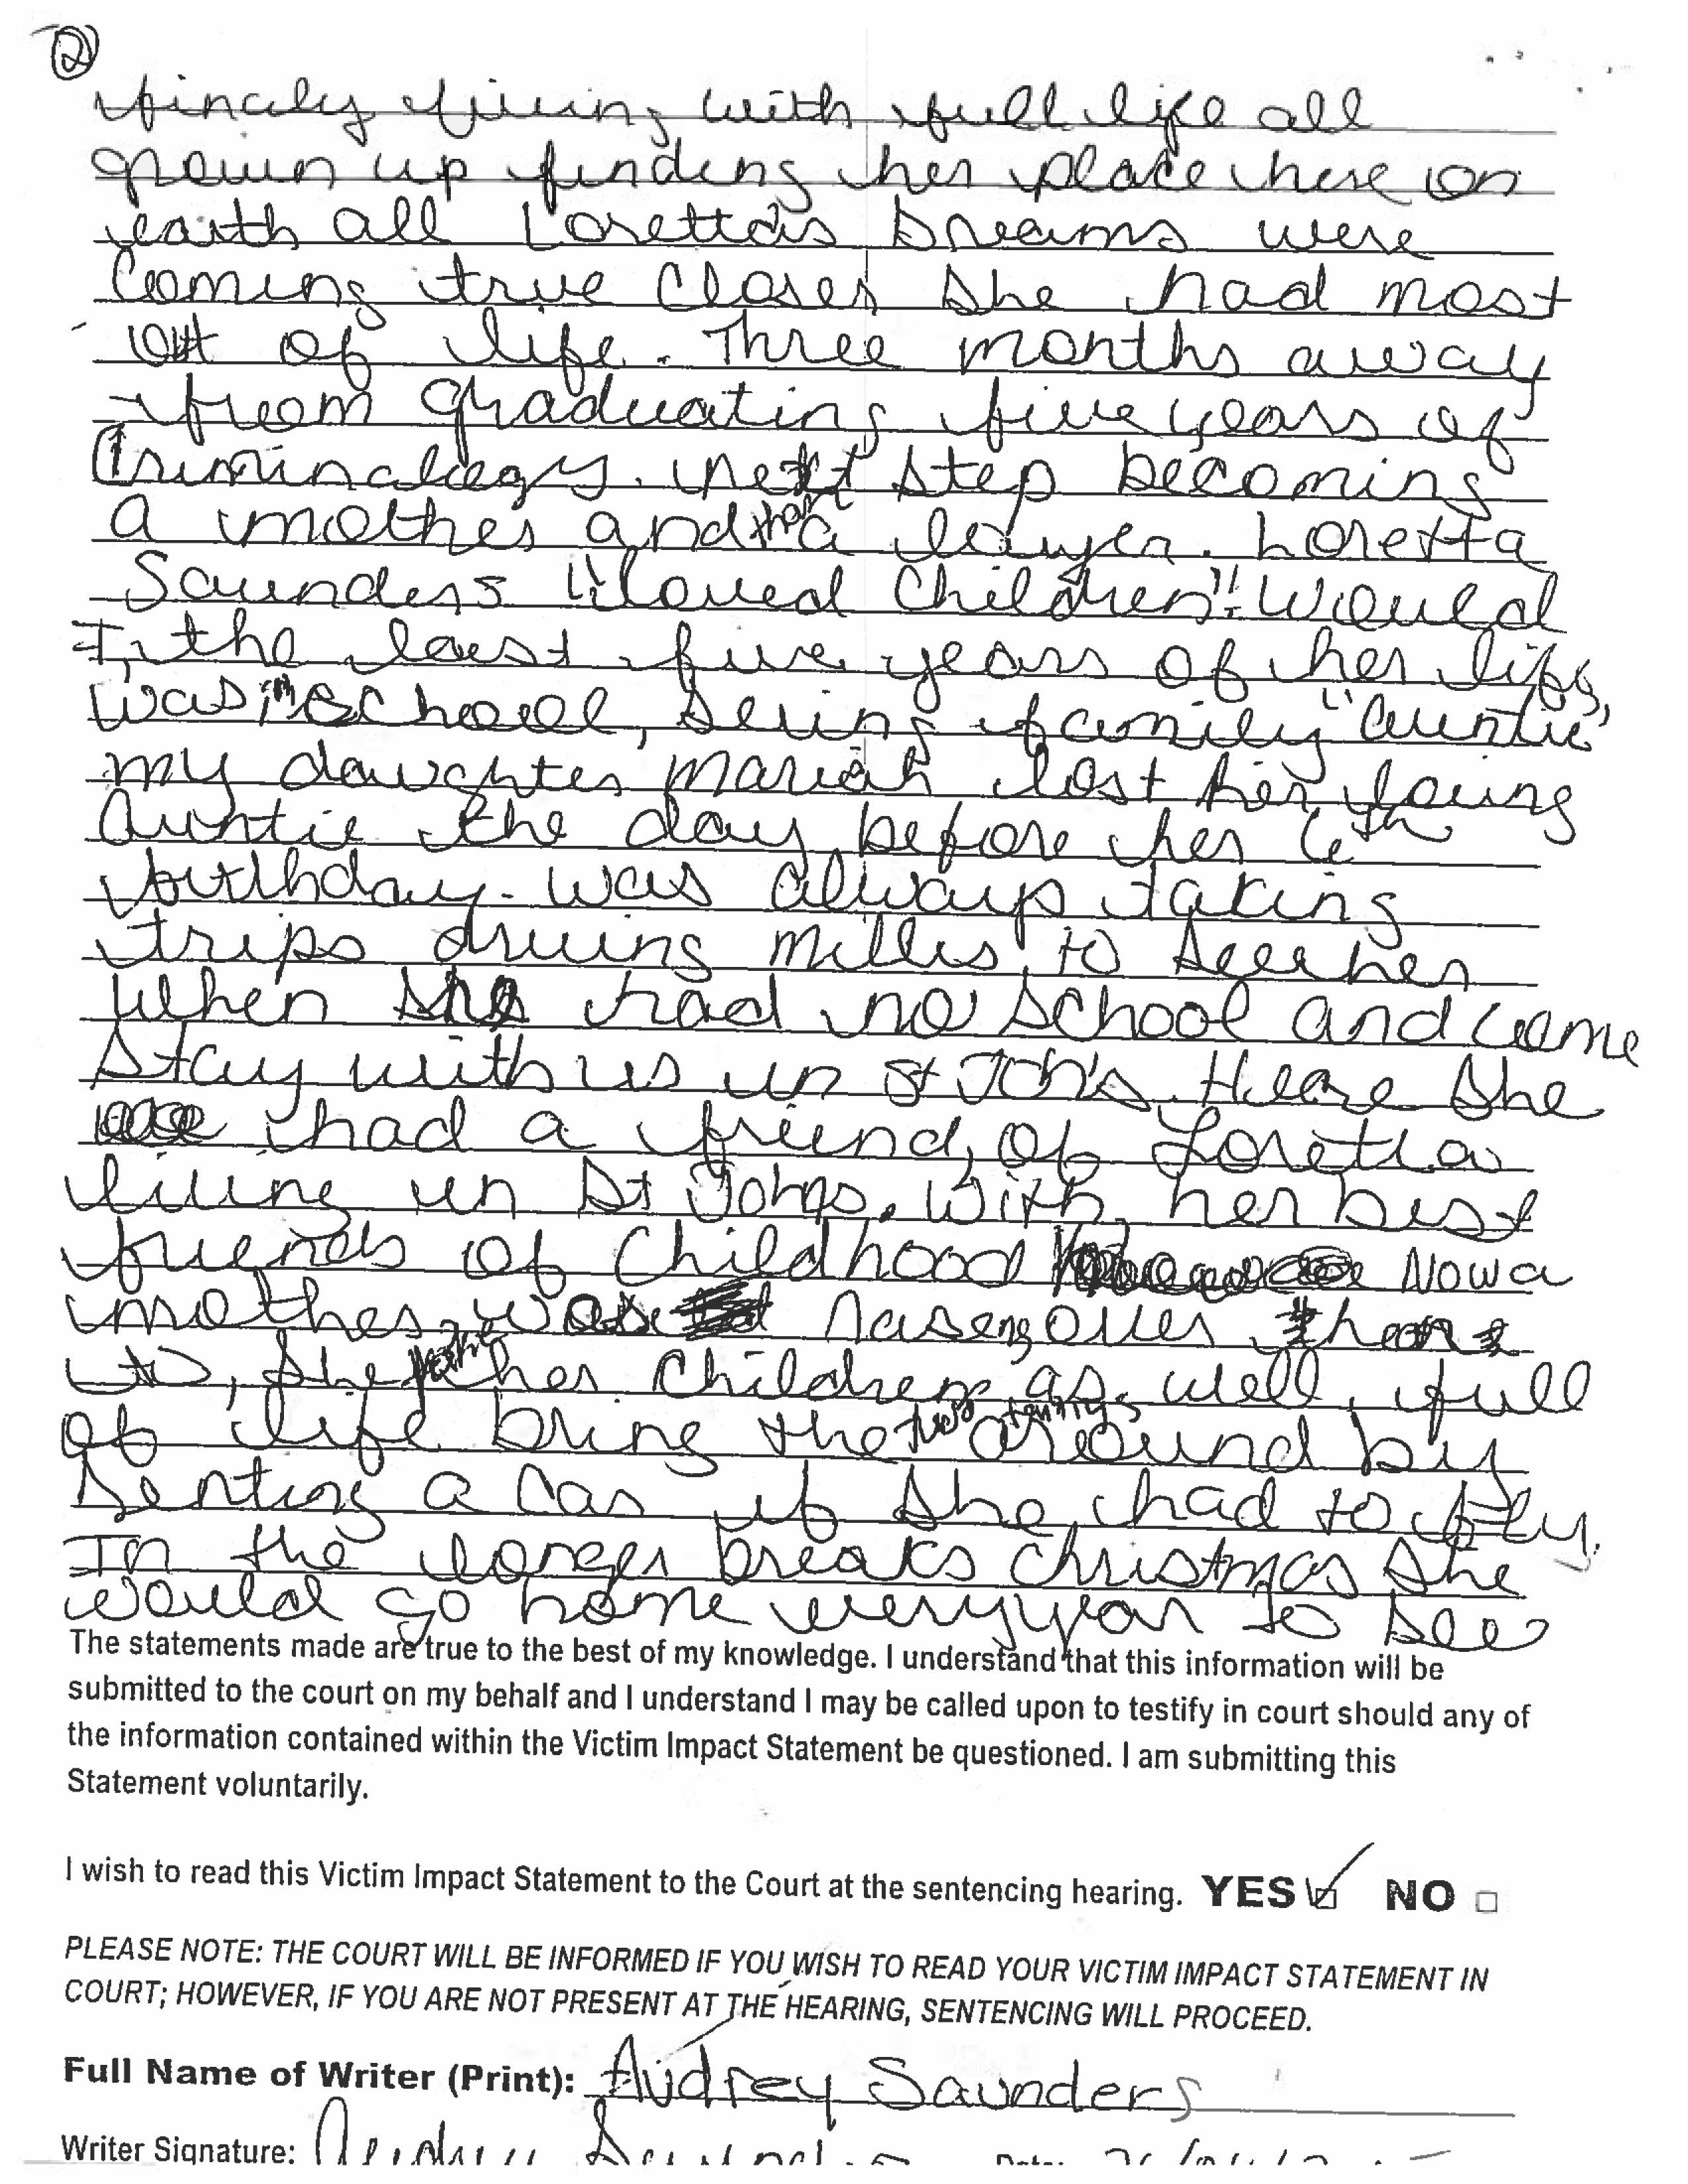 2
finaly living with full life all
grown up finding her place here on
earth all Loretta's Dreams were
Coming true Closer She had most
out of life. Three months away
from graduating five years of
Criminalogy. next Step becoming
a mother and than a lawyer. Loretta
Saunders "loved Children". Would
I, the last five years of her life,
was in School, Seeing family "Auntie"
my daughter Mariah lost her young
Auntie the day before her 6th
birthday. was always taking
trips driving milles to see her
when she had no School and come
Stay with us in St John's. Hear She
had a friend, of Loretta
living in St Johns. With her best
friends of Childhood Now a
mother, was over
us, She her Children as well, full
of life bring the two familys around by
Renting a Car if She had to fly.
In the longer breaks christmas She
would go home every year to see
The statements made are true to the best of my knowledge. I understand that this information will be
submitted to the court on my behalf and I understand I may be called upon to testify in court should any of
the information contained within the Victim Impact Statement be questioned. I am submitting this
Statement voluntarily.
I wish to read this Victim Impact Statement to the Court at the sentencing hearing. YES NO
PLEASE NOTE: THE COURT WILL BE INFORMED IF YOU WISH TO READ YOUR VICTIM IMPACT STATEMENT IN
COURT; HOWEVER, IF YOU ARE NOT PRESENT AT THE HEARING, SENTENCING WILL PROCEED.
Full Name of Writer (Print): Audrey Saunders
Writer Signature: Audrey Saunders Date: